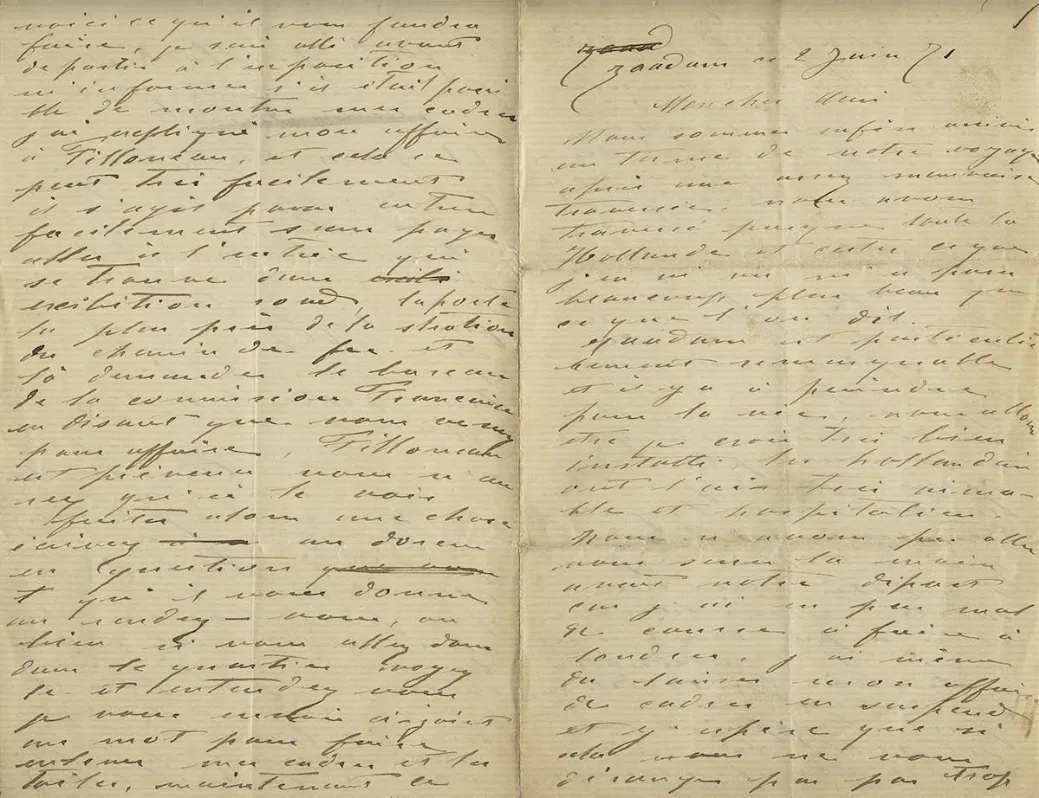 Zaandam ce 2 Juin 71
Mon cher Ami
Nous sommes enfin arrivés
au terme de notre voyage
après une assez mauvaise
traversée. nous avons
traversé presque toute la
Hollande et certes ce que
j'en ai vu m'a paru
beaucoup plus beau que
ce que l'on dit.
Zaandam est particuliè
rement remarquable
et il y a à peindre
pour la vie, nous allons
être je crois très bien
installé. les hollandais
ont l'air très aima-
ble et hospitalier.
Nous n'avons pu aller
vous serrer la main
avant notre départ
car j'ai eu pas mal
de courses à faire à
londres, j'ai même
du laisser mon affaire
de cadres en suspend
et j'espère que si
cela vous ne vous
dérangez pas par trop
voici ce qu'il vous faudra
faire, je suis allé avant
de partir à l'exposition
m'informer s'il était possi
ble de montrer mes cadres
j'ai expliqué mon affaire
à Tilloneau, et cela se
peut très facilement
il s'agit pour entrer
facilement sans payer
aller à l'entrée qui
se trouve dans
exibition road, la porte
la plus près de la station
du chemin de fer. et
là demander le bureau
de la commision Francaise
en disant que vous venez
pour affaires, Tilloneau
est prévenu vous n'au
rez qu'à le voir
faites alors une chose
écrivez un
en question
qu'il vous donne
un rendez-vous, ou
bien si vous allez dans
dans le quartier voyez
le. et entendez vous
je vous envoie cijoint
un mot pour faire
enlever mes cadres et la
toiles, maintenant ce